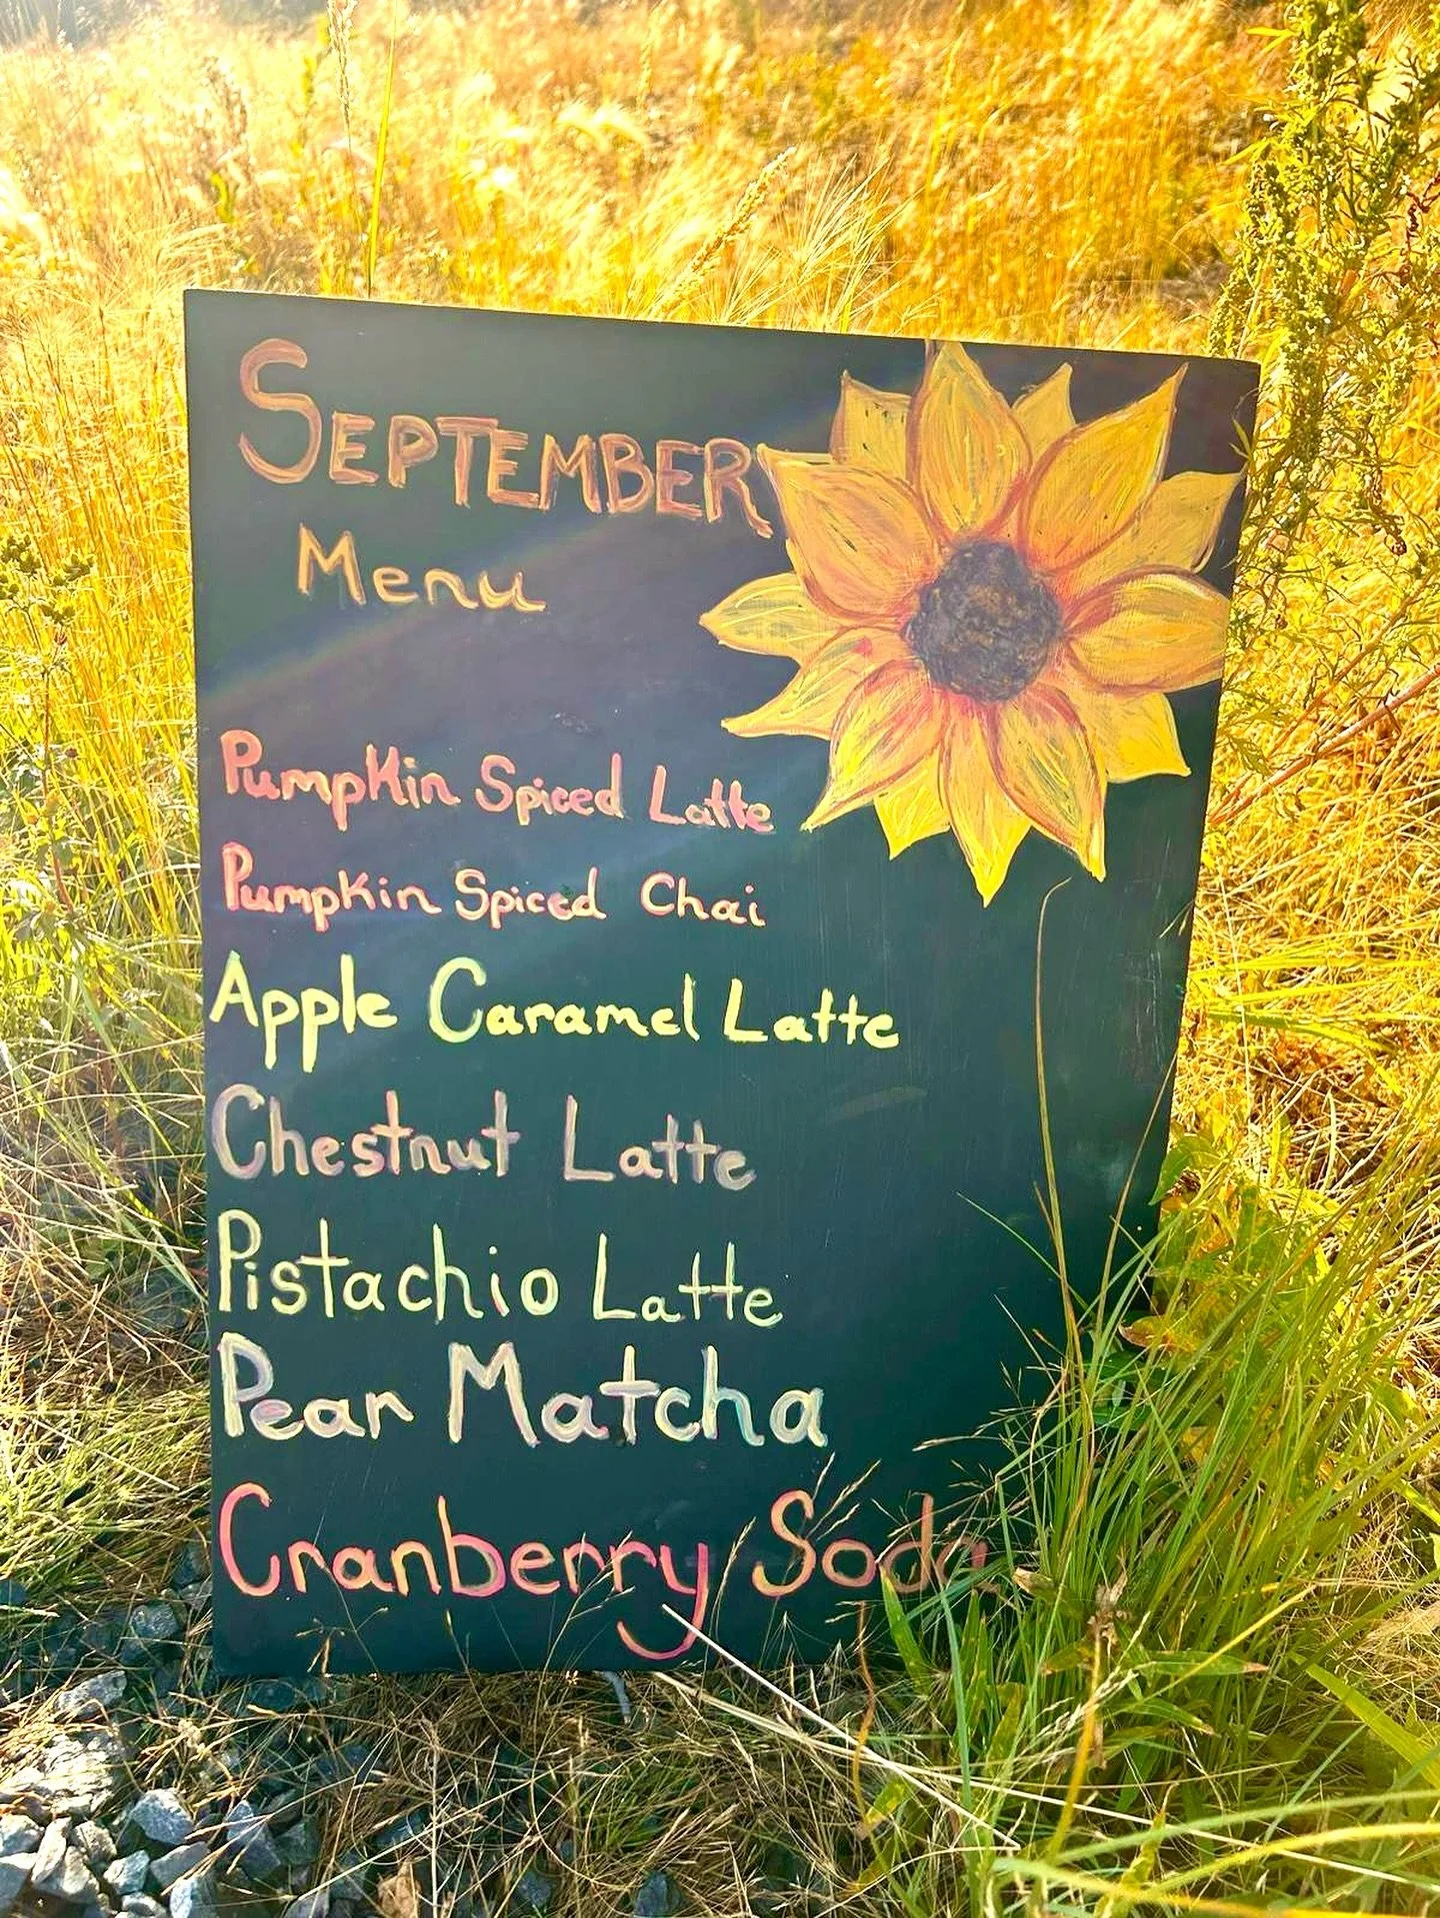 SEPTEMBER
Menu
Pumpkin Spiced Latte
Pumpkin Spiced Chai
Apple Caramel Latte
Chestnut Latte
Pistachio Latte
Pear Matcha
Cranberry Soda